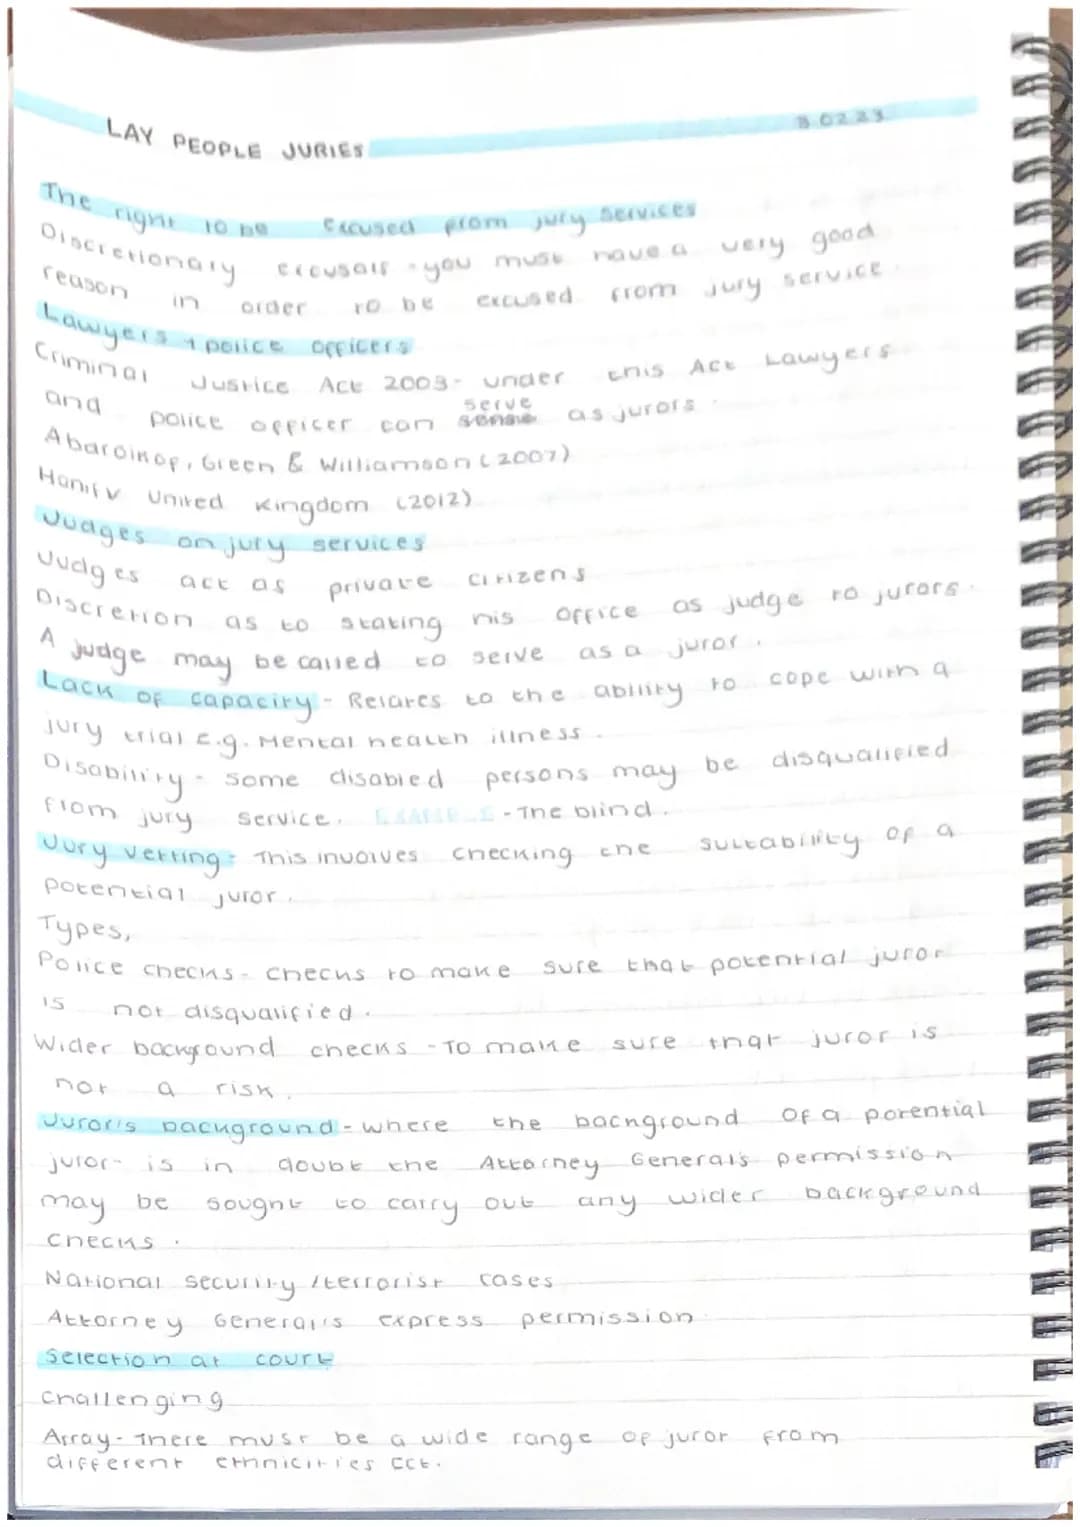 LAY PEOPLE JURIES
The right to be Excused from jury services
Discretionary excusals - you must have a very good
reason in order to be excused from jury service.
Lawyers & police officers
Criminal Justice Act 2003 - under this Act Lawyers
and police officer can serve as jurors.
Abaroinof, Green & Williamson (2007)
Hanif v United Kingdom (2012)
Judges on jury services
Judges act as private citizens
Discretion as to stating his office as judge to jurors.
A judge may be called to serve as a juror.
Lack of capacity - Relates to the ability to cope with a
jury trial e.g. Mental health illness.
Disability - some disabled persons may be disqualified
from jury service. EXAMPLE - The blind.
Jury vetting - This involves checking the suitability of a
potential juror.
Types,
Police checks - checks to make sure that potential juror
is not disqualified.
Wider background checks - To make sure that juror is
not a risk.
Juror's background - where the background of a potential
juror is in doubt the Attorney General's permission
may be sought to carry out any wider background
checks.
National security / terrorist cases
Attorney General's express permission
Selection at court
Challenging
Array - There must be a wide range of juror from
different ethnicities ect.